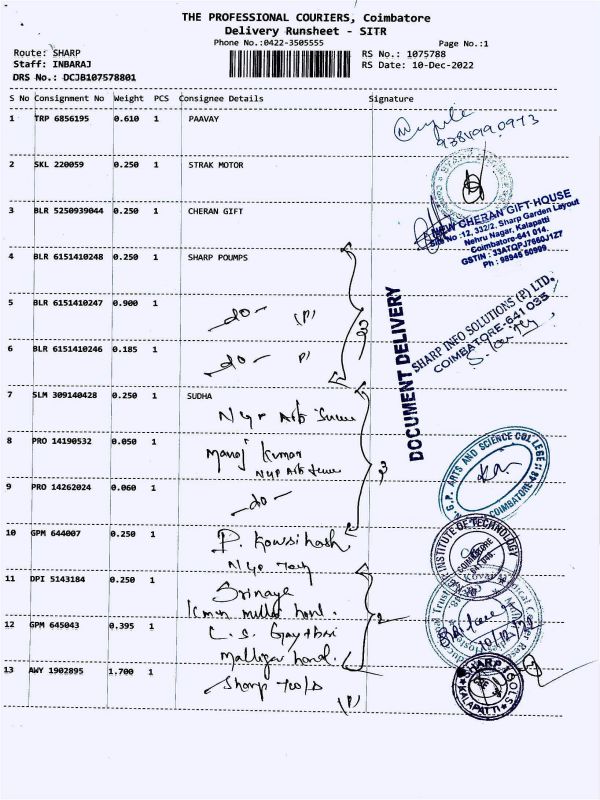 THE PROFESSIONAL COURIERS, Coimbatore
Delivery Runsheet - SITR
Phone No.:0422-3505555
Page No.:1
Route: SHARP
RS No.: 1075788
Staff: INBARAJ
RS Date: 10-Dec-2022
DRS No.: DCJB107578801
S No Consignment No Weight PCS Consignee Details Signature
1 TRP 6856195 0.610 1 PAAVAY
2 SKL 220059 0.250 1 STRAK MOTOR
3 BLR 5250939044 0.250 1 CHERAN GIFT
NEW CHERAN GIFT-HOUSE
Site No :12, 332/2, Sharp Garden Layout
Nehru Nagar, Kalapatti
Coimbatore-641 014.
GSTIN : 33ATQPJ7660J1Z7
Ph : 98945 50999
4 BLR 6151410248 0.250 1 SHARP POUMPS
5 BLR 6151410247 0.900 1 -do- (P)
6 BLR 6151410246 0.185 1 -do- P)
3
DOCUMENT DELIVERY
SHARP INFO SOLUTIONS (P) LTD.
COIMBATORE-641 035
7 SLM 309140428 0.250 1 SUDHA
8 PRO 14190532 0.050 1 Manoj Kumar
9 PRO 14262024 0.060 1 -do-
3
G.P. ARTS AND SCIENCE COLLEGE
COIMBATORE-48
10 GPM 644007 0.250 1 P. Kowsihash
INSTITUTE OF TECHNOLOGY
COIMBATORE
11 DPI 5143184 0.250 1 Srinaya
12 GPM 645043 0.395 1 C. S. Gaythri
Malliga hond.
2
13 AWY 1902895 1.700 1 Sharp Tools
(P)
SHARP TOOLS
KALAPATTI